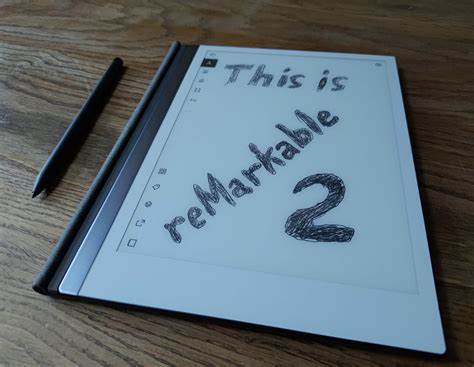 This is
reMarkable
2